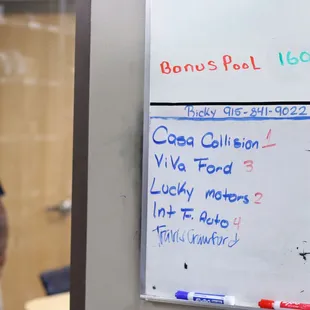 Bonus Pool 160
Ricky 915-841-9022
Casa Collision 1
Viva Ford 3
Lucky motors 2
Int F. Auto 4
Travis Crawford
EXPO